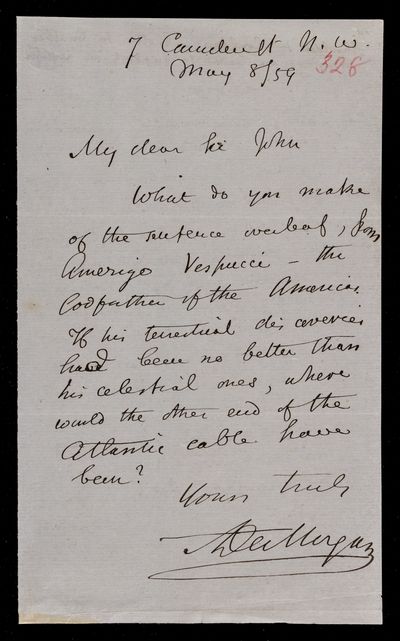 7 Camden St N.W.
May 8/59 328
My dear Sir John
What do you make
of the sentence overleaf, from
Amerigo Vespucci - the
Godfather of the Americas.
If his terrestrial discoveries
had been no better than
his celestial ones, where
would the other end of the
Atlantic cable have
been?
Yours truly
ADeMorgan